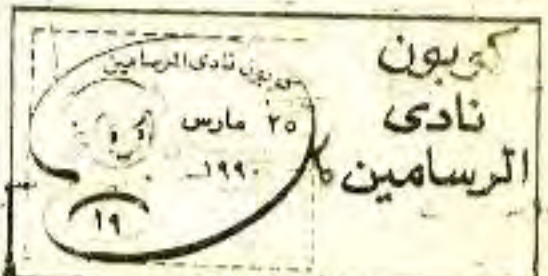 كوبون
نادى
الرسامين
كوبون نادى الرسامين
٢٥ مارس
١٩٩٠
١٩